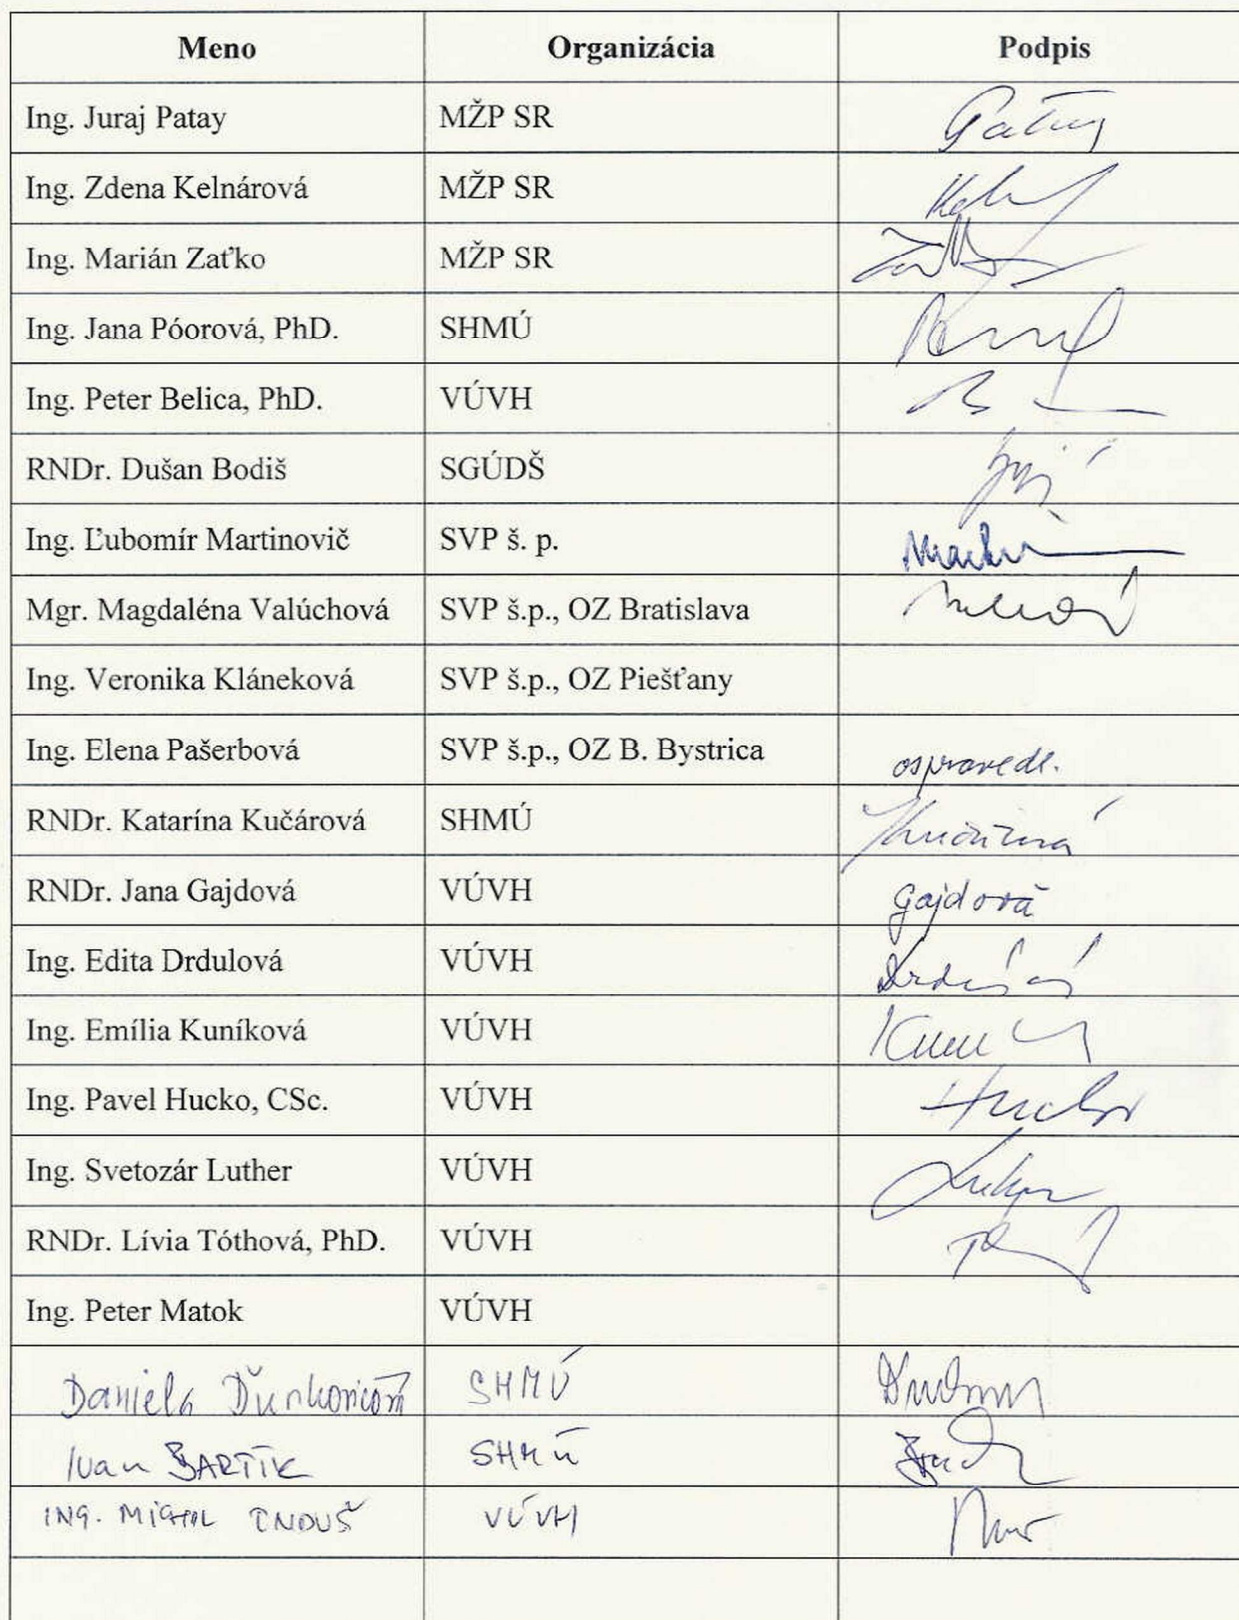 Meno Organizácia Podpis
Ing. Juraj Patay MŽP SR
Ing. Zdena Kelnárová MŽP SR
Ing. Marián Zaťko MŽP SR
Ing. Jana Póorová, PhD. SHMÚ
Ing. Peter Belica, PhD. VÚVH
RNDr. Dušan Bodiš SGÚDŠ
Ing. Ľubomír Martinovič SVP š. p.
Mgr. Magdaléna Valúchová SVP š.p., OZ Bratislava
Ing. Veronika Kláneková SVP š.p., OZ Piešťany
Ing. Elena Pašerbová SVP š.p., OZ B. Bystrica ospravedl.
RNDr. Katarína Kučárová SHMÚ
RNDr. Jana Gajdová VÚVH Gajdová
Ing. Edita Drdulová VÚVH
Ing. Emília Kuníková VÚVH
Ing. Pavel Hucko, CSc. VÚVH Hucko
Ing. Svetozár Luther VÚVH
RNDr. Lívia Tóthová, PhD. VÚVH
Ing. Peter Matok VÚVH
Daniela SHMÚ
Ivan BARTÍK SHMÚ
ING. VÚVH